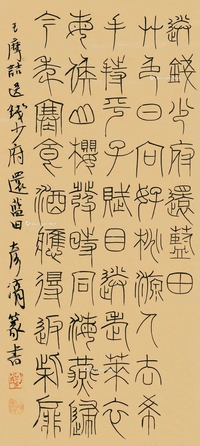 送錢少府還藍田
艸色日向好桃源人去希
手持平子賦目送老萊衣
每候山櫻發時同海燕歸
今年寒食酒應得返柴扉
王摩詰送錢少府還藍田 篆書